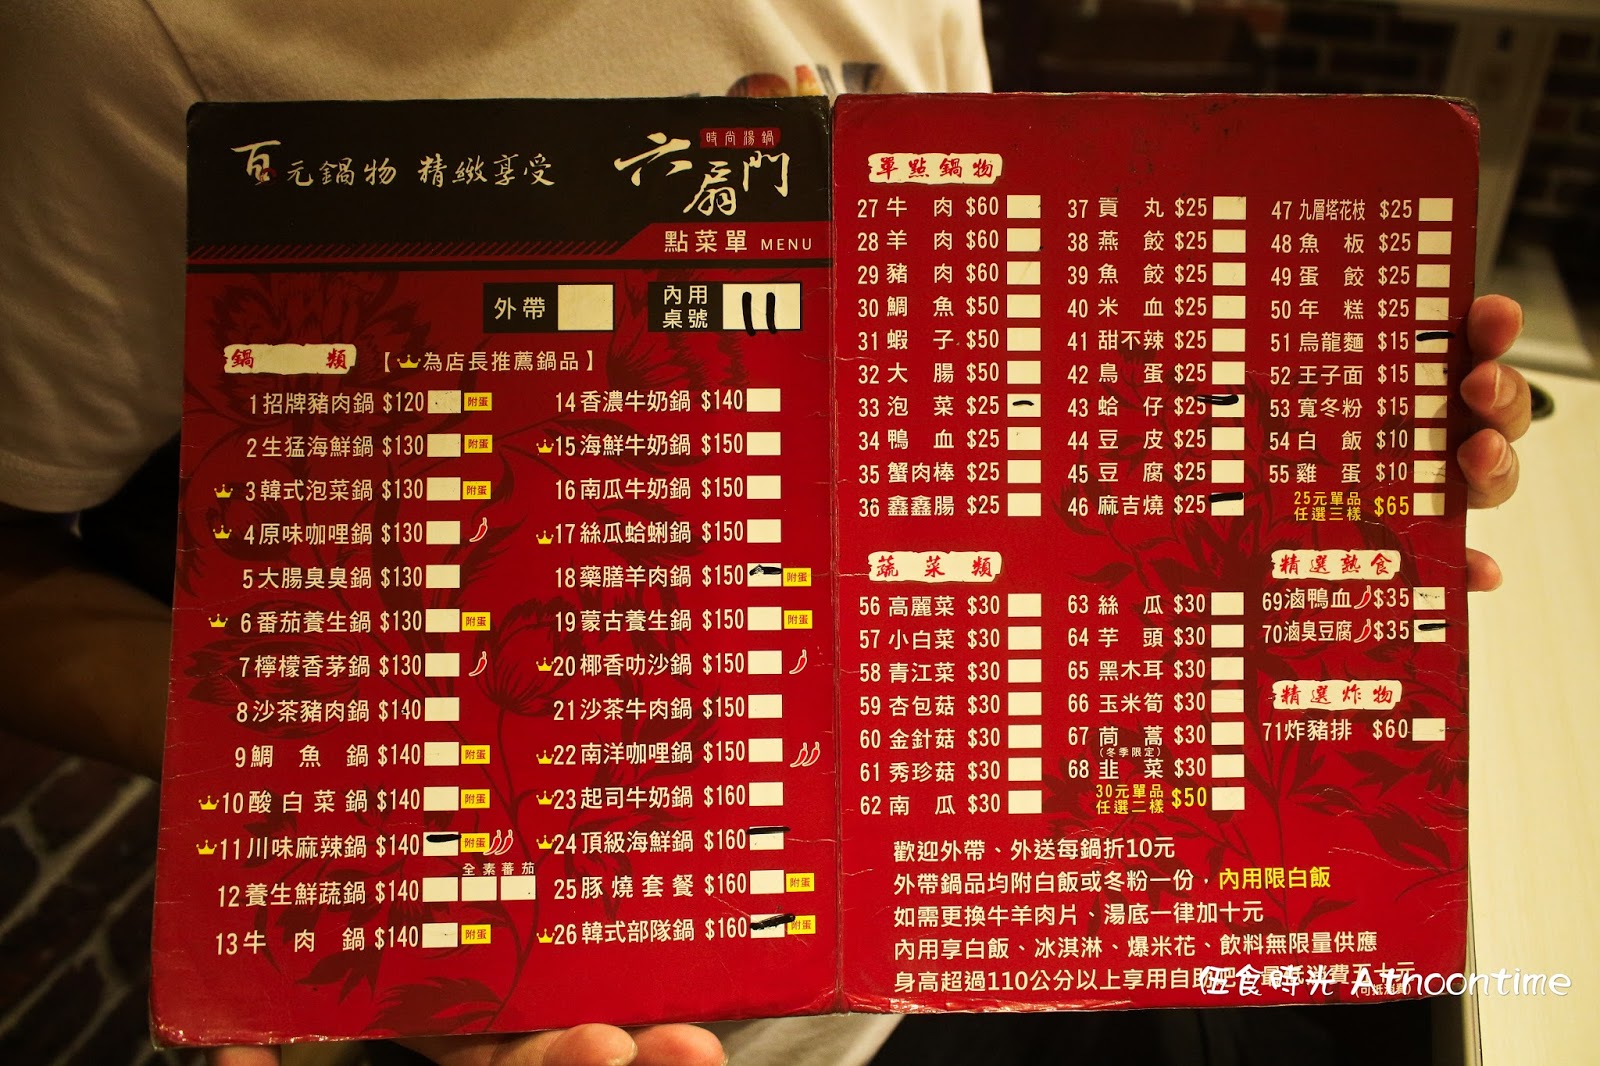 百元鍋物 精緻享受
時尚湯鍋
六扇門
點菜單 MENU
外帶
內用桌號 11
鍋類 【為店長推薦鍋品】
1 招牌豬肉鍋 $120 附蛋
2 生猛海鮮鍋 $130 附蛋
3 韓式泡菜鍋 $130 附蛋
4 原味咖哩鍋 $130
5 大腸臭臭鍋 $130
6 番茄養生鍋 $130 附蛋
7 檸檬香茅鍋 $130
8 沙茶豬肉鍋 $140
9 鯛魚鍋 $140 附蛋
10 酸白菜鍋 $140 附蛋
11 川味麻辣鍋 $140 附蛋
全素 蕃茄
12 養生鮮蔬鍋 $140
13 牛肉鍋 $140 附蛋
14 香濃牛奶鍋 $140
15 海鮮牛奶鍋 $150
16 南瓜牛奶鍋 $150
17 絲瓜蛤蜊鍋 $150
18 藥膳羊肉鍋 $150 附蛋
19 蒙古養生鍋 $150 附蛋
20 椰香叻沙鍋 $150
21 沙茶牛肉鍋 $150
22 南洋咖哩鍋 $150
23 起司牛奶鍋 $160
24 頂級海鮮鍋 $160
25 豚燒套餐 $160 附蛋
26 韓式部隊鍋 $160 附蛋
單點鍋物
27 牛肉 $60
28 羊肉 $60
29 豬肉 $60
30 鯛魚 $50
31 蝦子 $50
32 大腸 $50
33 泡菜 $25
34 鴨血 $25
35 蟹肉棒 $25
36 鑫鑫腸 $25
37 貢丸 $25
38 燕餃 $25
39 魚餃 $25
40 米血 $25
41 甜不辣 $25
42 鳥蛋 $25
43 蛤仔 $25
44 豆皮 $25
45 豆腐 $25
46 麻吉燒 $25
47 九層塔花枝 $25
48 魚板 $25
49 蛋餃 $25
50 年糕 $25
51 烏龍麵 $15
52 王子面 $15
53 寬冬粉 $15
54 白飯 $10
55 雞蛋 $10
25元單品任選三樣 $65
蔬菜類
56 高麗菜 $30
57 小白菜 $30
58 青江菜 $30
59 杏包菇 $30
60 金針菇 $30
61 秀珍菇 $30
62 南瓜 $30
63 絲瓜 $30
64 芋頭 $30
65 黑木耳 $30
66 玉米筍 $30
67 茼蒿 $30
(冬季限定)
68 韭菜 $30
30元單品任選二樣 $50
精選熟食
69 滷鴨血 $35
70 滷臭豆腐 $35
精選炸物
71 炸豬排 $60
歡迎外帶、外送每鍋折10元
外帶鍋品均附白飯或冬粉一份，內用限白飯
如需更換牛羊肉片、湯底一律加十元
內用享白飯、冰淇淋、爆米花、飲料無限量供應
身高超過110公分以上享用自助吧 最低消費五十元
伍食時光 Athoontime